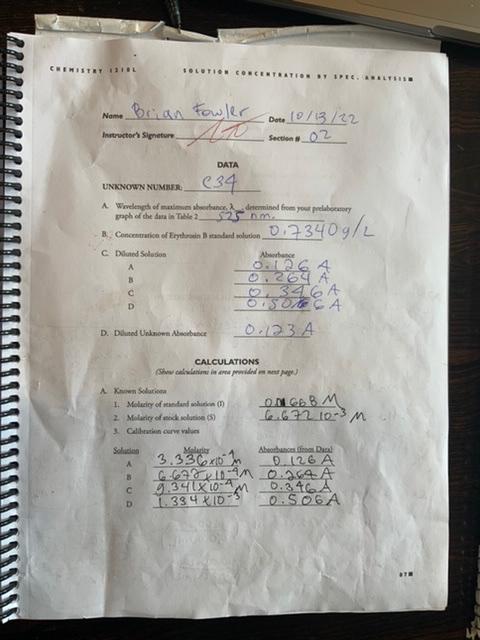 CHEMISTRY 1210L SOLUTION CONCENTRATION BY SPEC. ANALYSIS
Name Brian Fowler Date 10/13/22
Instructor's Signature Section # 02
DATA
UNKNOWN NUMBER: C34
A. Wavelength of maximum absorbance, λ , determined from your prelaboratory
graph of the data in Table 2 525 nm.
B. Concentration of Erythrosin B standard solution 0.7340 g/L
C. Diluted Solution Absorbance
A 0.126 A
B 0.264 A
C 0.346 A
D 0.506 A
D. Diluted Unknown Absorbance 0.123 A
CALCULATIONS
(Show calculations in area provided on next page.)
A. Known Solutions
1. Molarity of standard solution (I) M
2. Molarity of stock solution (S) 6.672 10-3 M
3. Calibration curve values
Solution Molarity Absorbances (from Data)
A 3.336x10-4 M 0.126 A
B 6.672x10-4 M 0.264 A
C 9.341x10-4 M 0.346 A
D 1.334x10-3 0.506 A
87